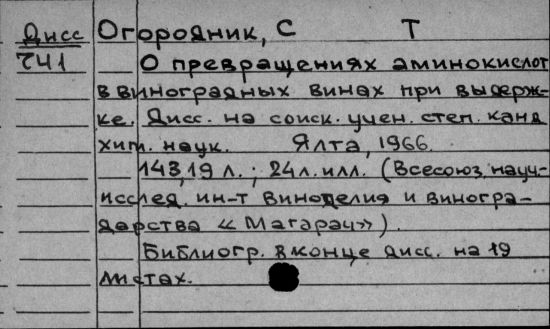 Дисс Огородник, С Т
241 О превращениях аминокислот
в виноградных винах при выдерж-
ке. Дисс. на соиск. учен. степ. канд
хим. наук. Ялта, 1966.
143,19 л.; 24 л. илл. (Всесоюз. науч-
исслед. ин-т виноделия и виногра-
дарства «Магарач»).
Библиогр. в конце дисс. на 19
листах.